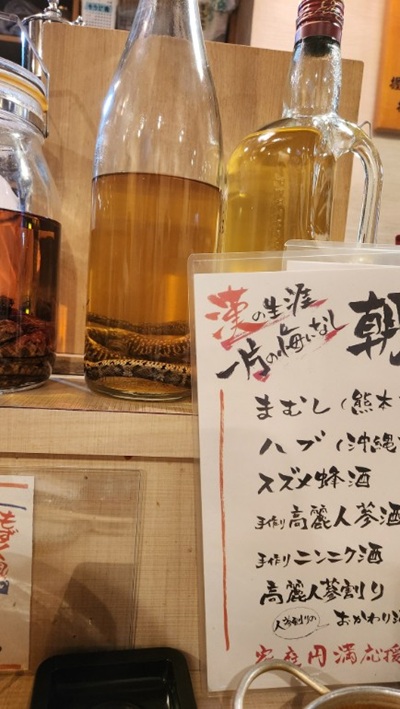 漢の生涯
一片の悔いなし
朝
まむし(熊本
ハブ(沖縄
スズメ蜂酒
手作り高麗人蔘酒
手作りニンニク酒
高麗人蔘割り
人蔘割りの おかわり
家庭円満応援
もずく